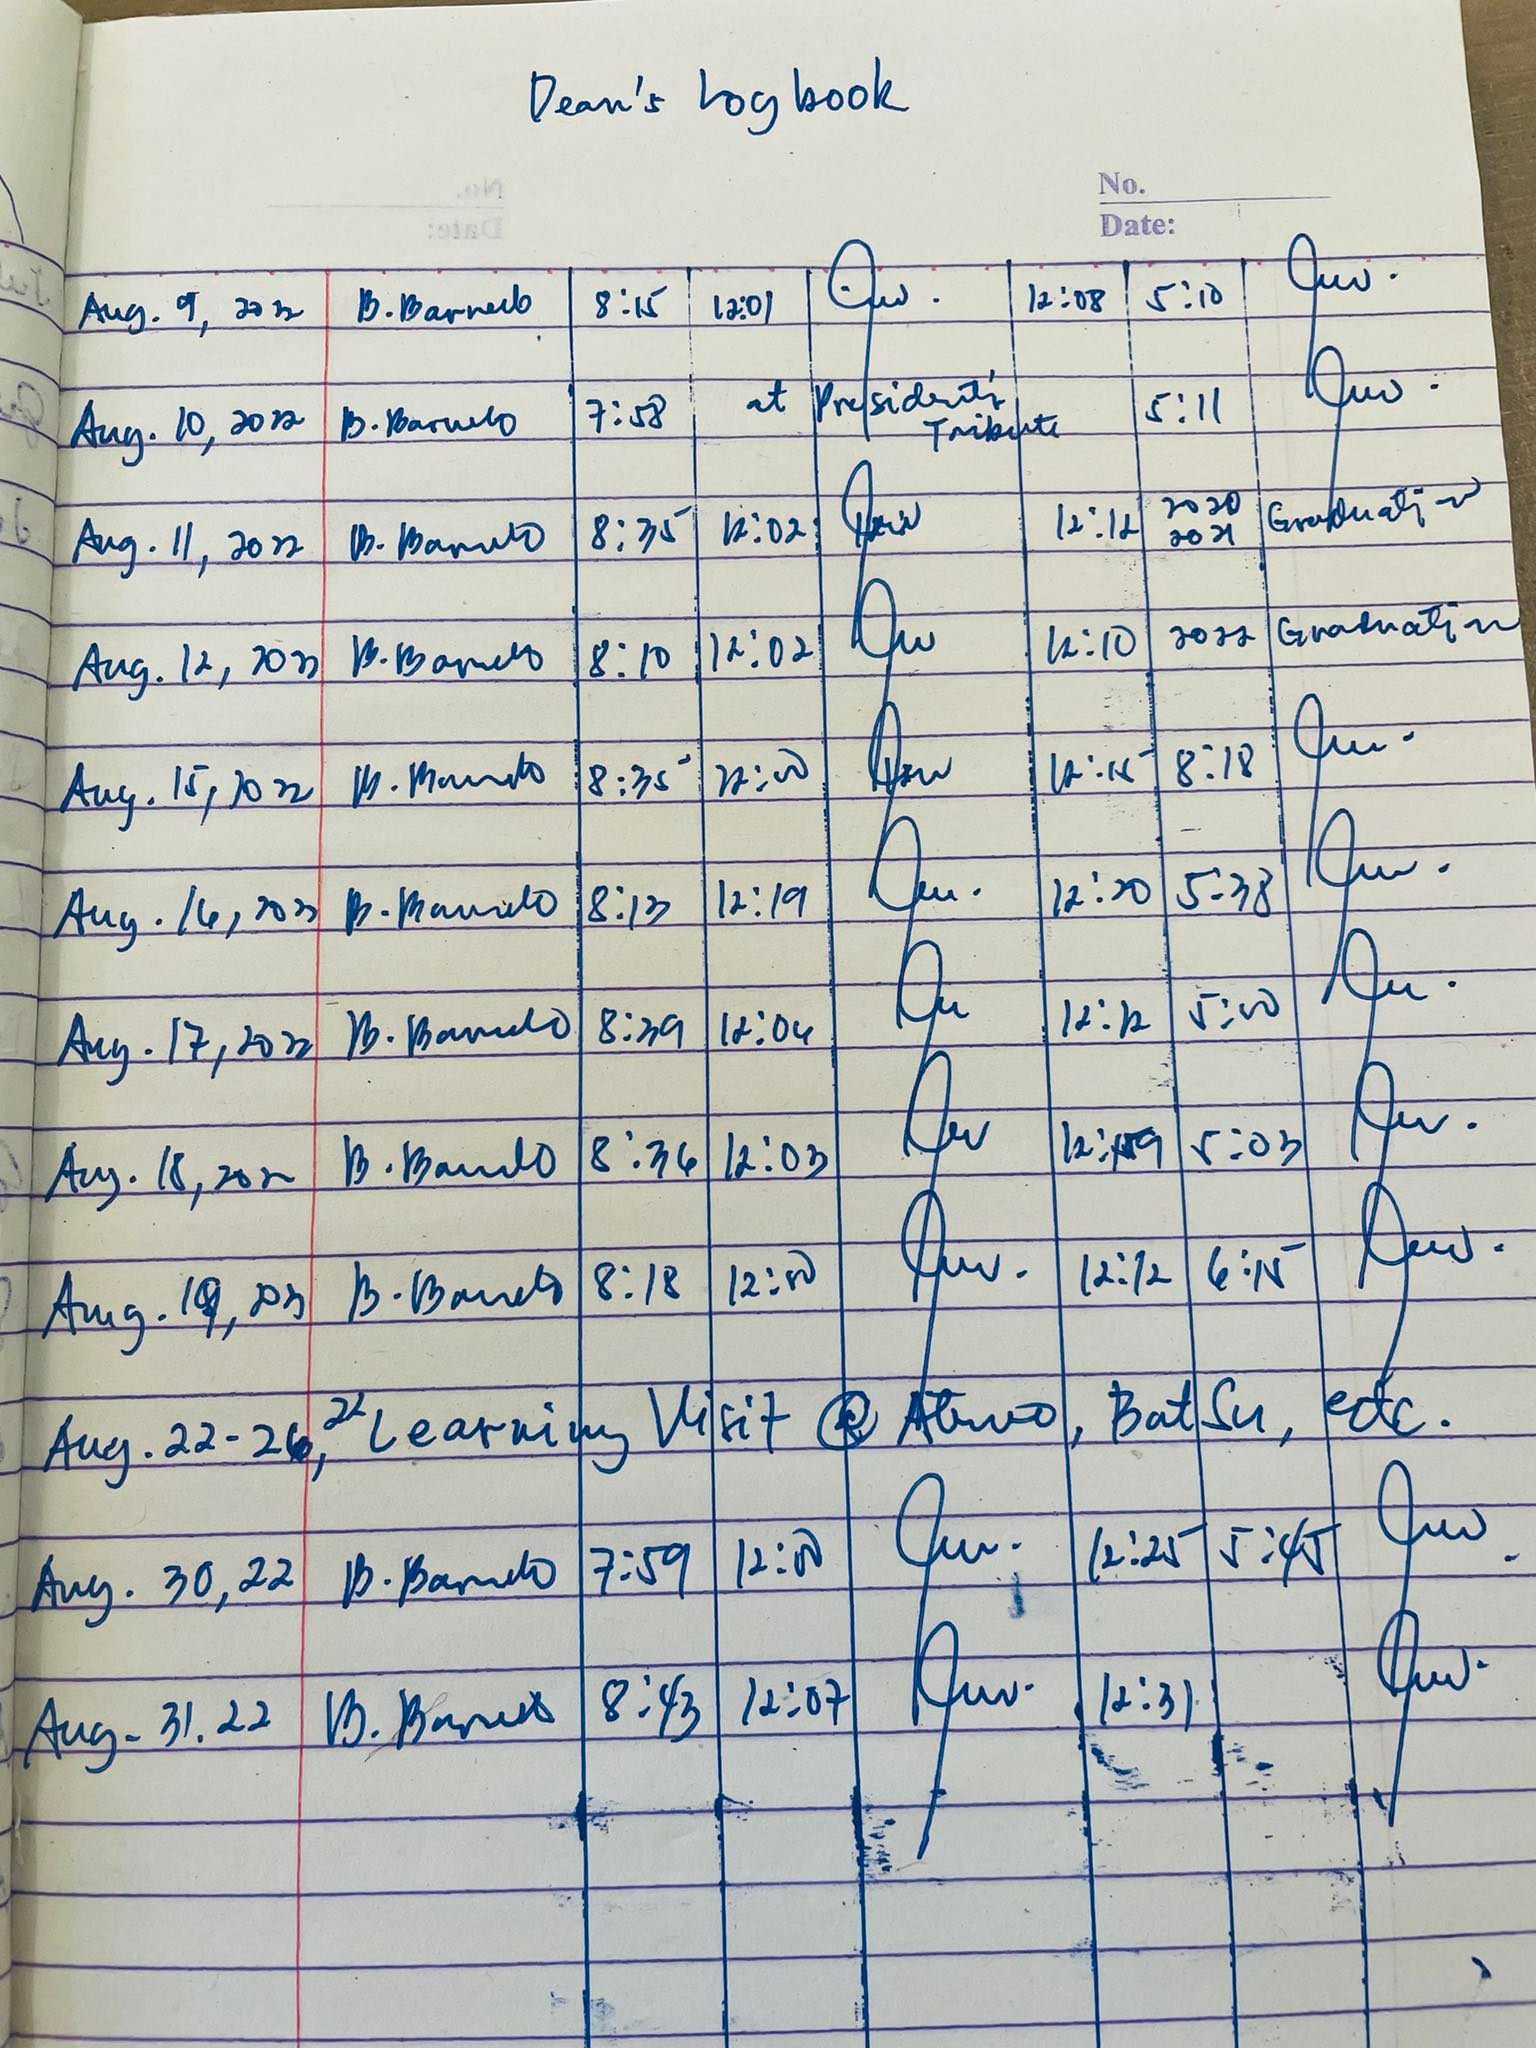 Dean's Logbook
No.
Date:
Aug. 9, 2022 B. Barnedo 8:15 12:01 12:08 5:10
Aug. 10, 2022 B. Barnedo 7:58 at President's Tribute 5:11
Aug. 11, 2022 B. Barnedo 8:35 12:02 12:12 2020 2021 Graduation
Aug. 12, 2022 B. Barnedo 8:10 12:02 12:10 2022 Graduation
Aug. 15, 2022 B. Barnedo 8:35 12:00 12:15 8:18
Aug. 16, 2022 B. Barnedo 8:13 12:19 12:20 5:38
Aug. 17, 2022 B. Barnedo 8:39 12:04 12:12 5:00
Aug. 18, 2022 B. Barnedo 8:36 12:03 5:03
Aug. 19, B. Barnedo 8:18 12:00 12:12 6:15
Aug. 22-26, 22 Learning Visit @ Ateneo, BatSu, etc.
Aug. 30, 22 B. Barnedo 7:59 12:00 12:25 5:45
Aug. 31. 22 B. Barnedo 8:43 12:07 12:31